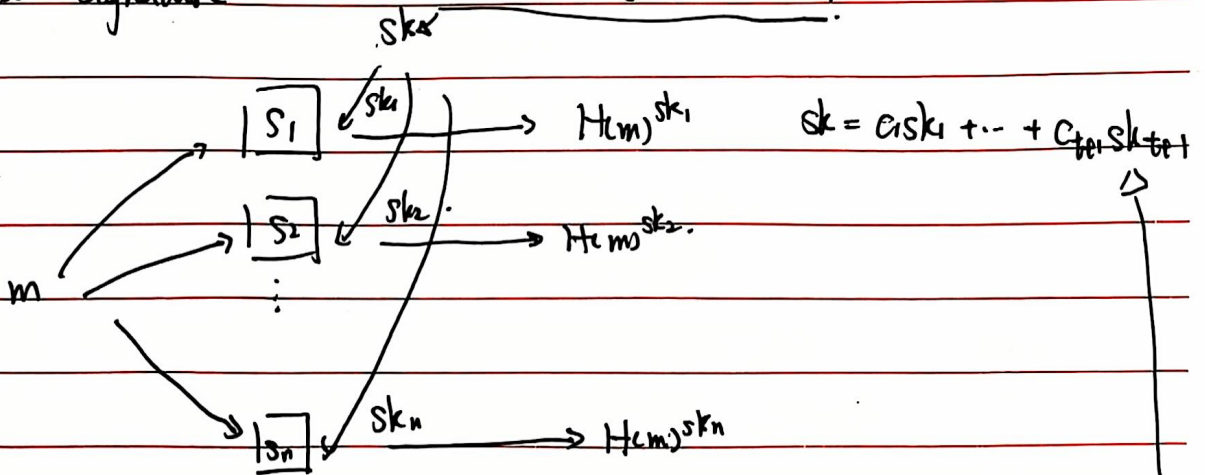 sk
S1 sk1 H(m)^sk1 sk = c1sk1 + ... + c_{t+1} sk_{t+1}
S2 sk2. H(m)^sk2.
m
⋮
Sn skn H(m)^skn